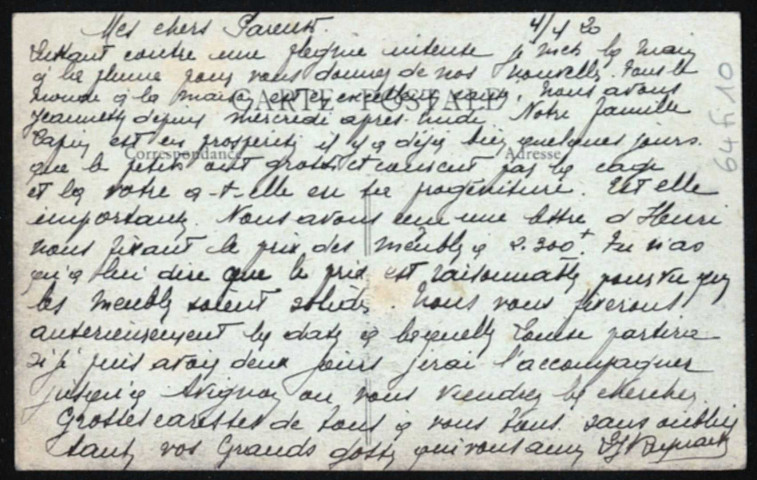 4/4 20
Mes chers Parents.
Luttant contre une flegme intense je mets la main
à la plume pour vous donner de nos nouvelles. Tout le
monde à la maison est en excellente santé, nous avons
CARTE POSTALE
Jeannette depuis mercredi après-midi. Notre famille
lapin est en prospérité il y a déjà bien quelques jours.
Correspondance
Adresse
que les petits ont grossi et courent pas la cage
et la votre a-t-elle eu sa progéniture. Est elle
importante. Nous avons eu une lettre d'Henri
nous fixant le prix des meubles à 2.200f. Tu n'as
qu'à lui dire que le prix est raisonnable pourvu que
les meubles soient solides. Nous vous fixerons
anterieurement la date à laquelle Louise partira
si je puis avoir deux jours j'irai l'accompagner
jusqu'à Avignon ou vous viendrez la chercher.
Grosses caresses de tous à vous tous sans oublier
tante vos Grands gosses qui vous aiment
64 Fi 10